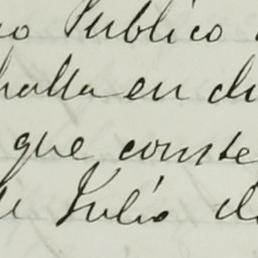 co Publico
halla en di
que conste
de Julio de